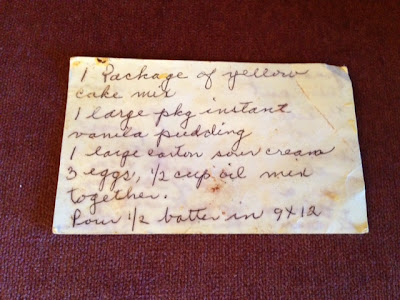 1 Package of yellow
cake mix
1 large pkg instant
vanila pudding
1 large carton sour cream
3 eggs, 1/2 cup oil mix
together.
Pour 1/2 batter in 9x12